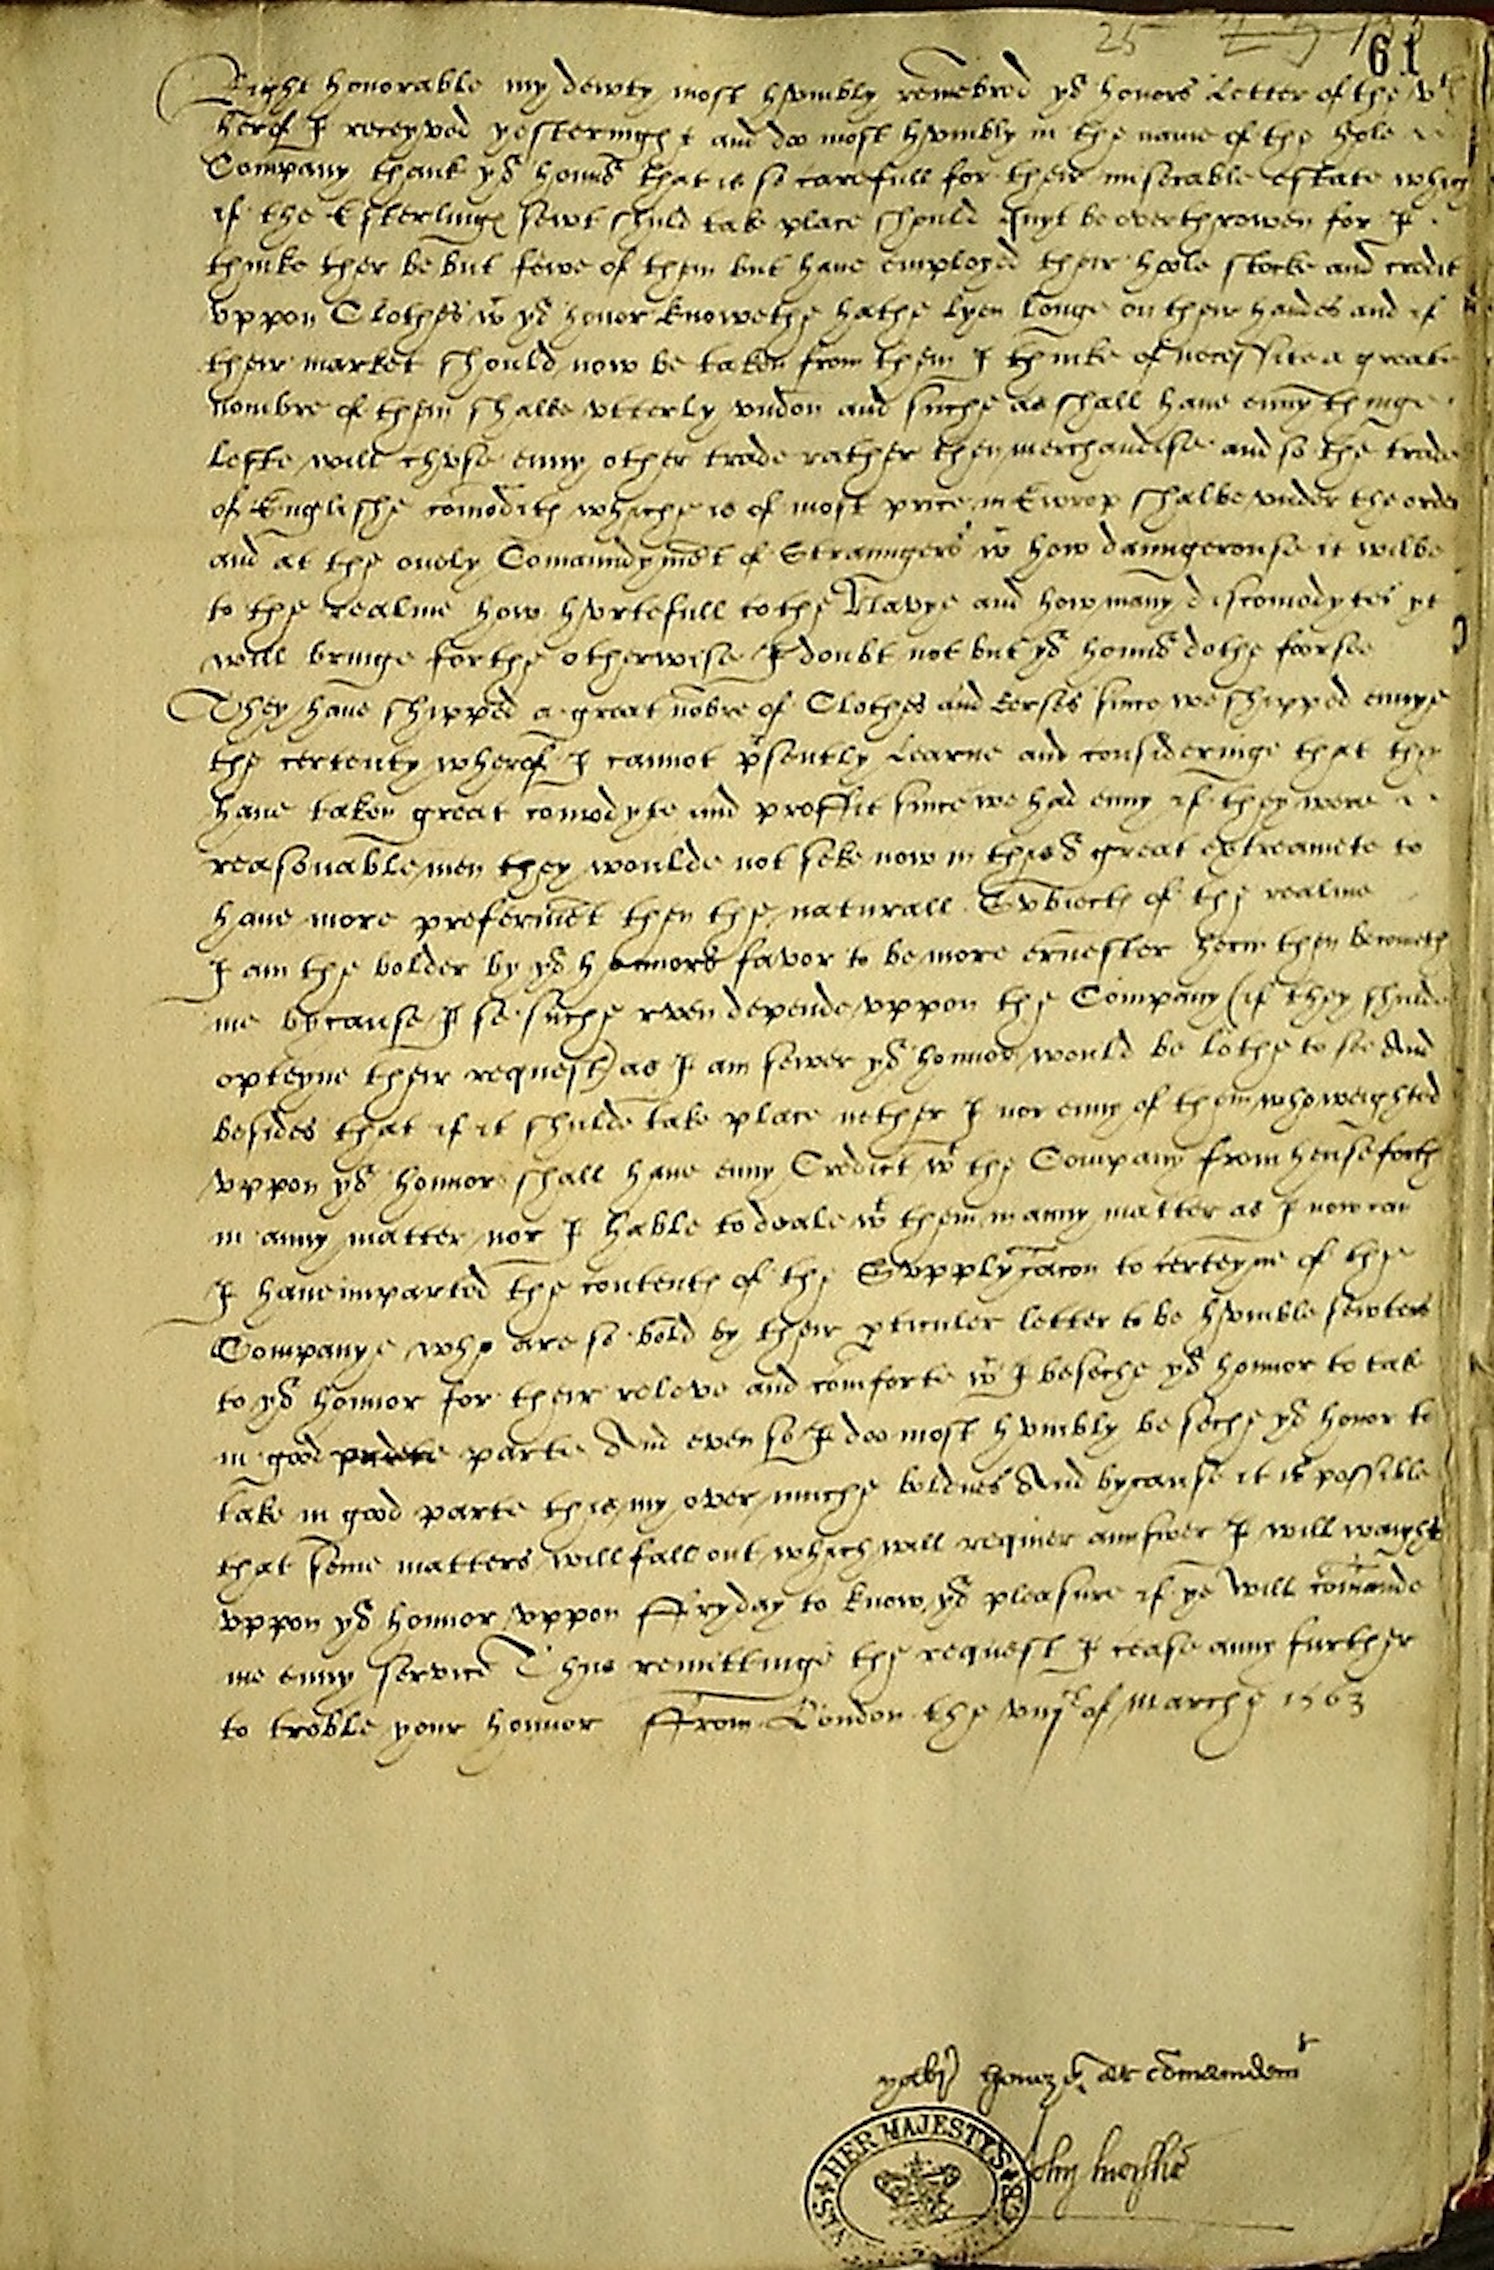 25
61
Right honorable my dewty most hvmbly remēbred yor honors Letter of the vth
herof I receyved yesternight and doo most hvmbly in the name of the hole
Company thank yor honnor that is so carefull for their miserable estate which
if the Esterlinges sewt shuld take place should be overthrowen for I
thinke ther be but fewe of them but have employed their hoole stocke and credit
vppon Clothes wch yor honor knowethe hathe lyen longe on their handes and if
their market should now be taken from them I thinke of necessite a greate
nombre of them shalbe vtterly vndon and suche as shall have enny thinge
lefte will chvse enny other trade rather then merchandise and so the trade
of Englishe comodites whiche is of most price in Ewrop shalbe vnder the order
and at the onely Comaundymēt of Straungers wch how daungerouse it wilbe
to the realme how hvrtefull to the Navye and how many discomodytes yt
will bringe forthe otherwise I doubt not but yor honnor dothe foorsee
They have shipped a great nōbre of Clothes and kerses since we shipped ennye
the certenty wherof I cannot psently Learne and consideringe that they
have taken great comodyte and proffit since we had enny if they were
reasonable men they woulde not seke now in this or great extreamete to
have more prefermēt then the naturall Svbiectes of the realme
I am the bolder by yor honnors favor to be more ernester herin then becometh
me bycause I se suche rwen depende vppon the Company (if they shulde
opteyne their request) as I am sewer yor honnor would be lothe to see And
besides that if it shulde take place nether I nor enny of them who weighted
vppon yor honnor shall have enny Credict wt the Company from henseforth
in anny matter nor I hable to deale wt them in anny matter as I now can
I have imparted the contentes of the Svpplycacon to certeyne of the
Companye who are so bold by their pticuler letter to be hvmble sewters
to yor honnor for their releve and comforte wch I beseche yor honnor to take
in good parte And even so I doo most hvmbly beseche yor honor to
take in good parte this my over muche boldnes And bycause it is possible
that some matters will fall out which will requier aunswer I will waight
vppon yor honnor vppon ffryday to know yor pleasure if ye will comānde
me enny service Thus remittinge the request I cease anny further
to troble your honnor ffrom London the viijth of Marche 1563
honor at cōmandemt
John
HER MAJESTY'S